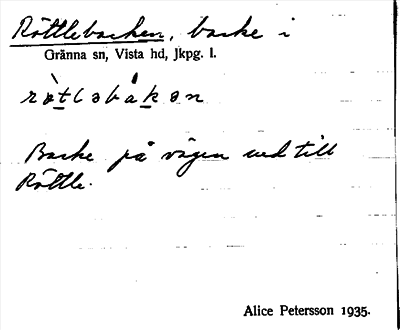 Röttlebacken, backe i
Gränna sn, Vista hd, Jkpg. l.
Backe på vägen ned till
Röttle.
Alice Petersson 1935.